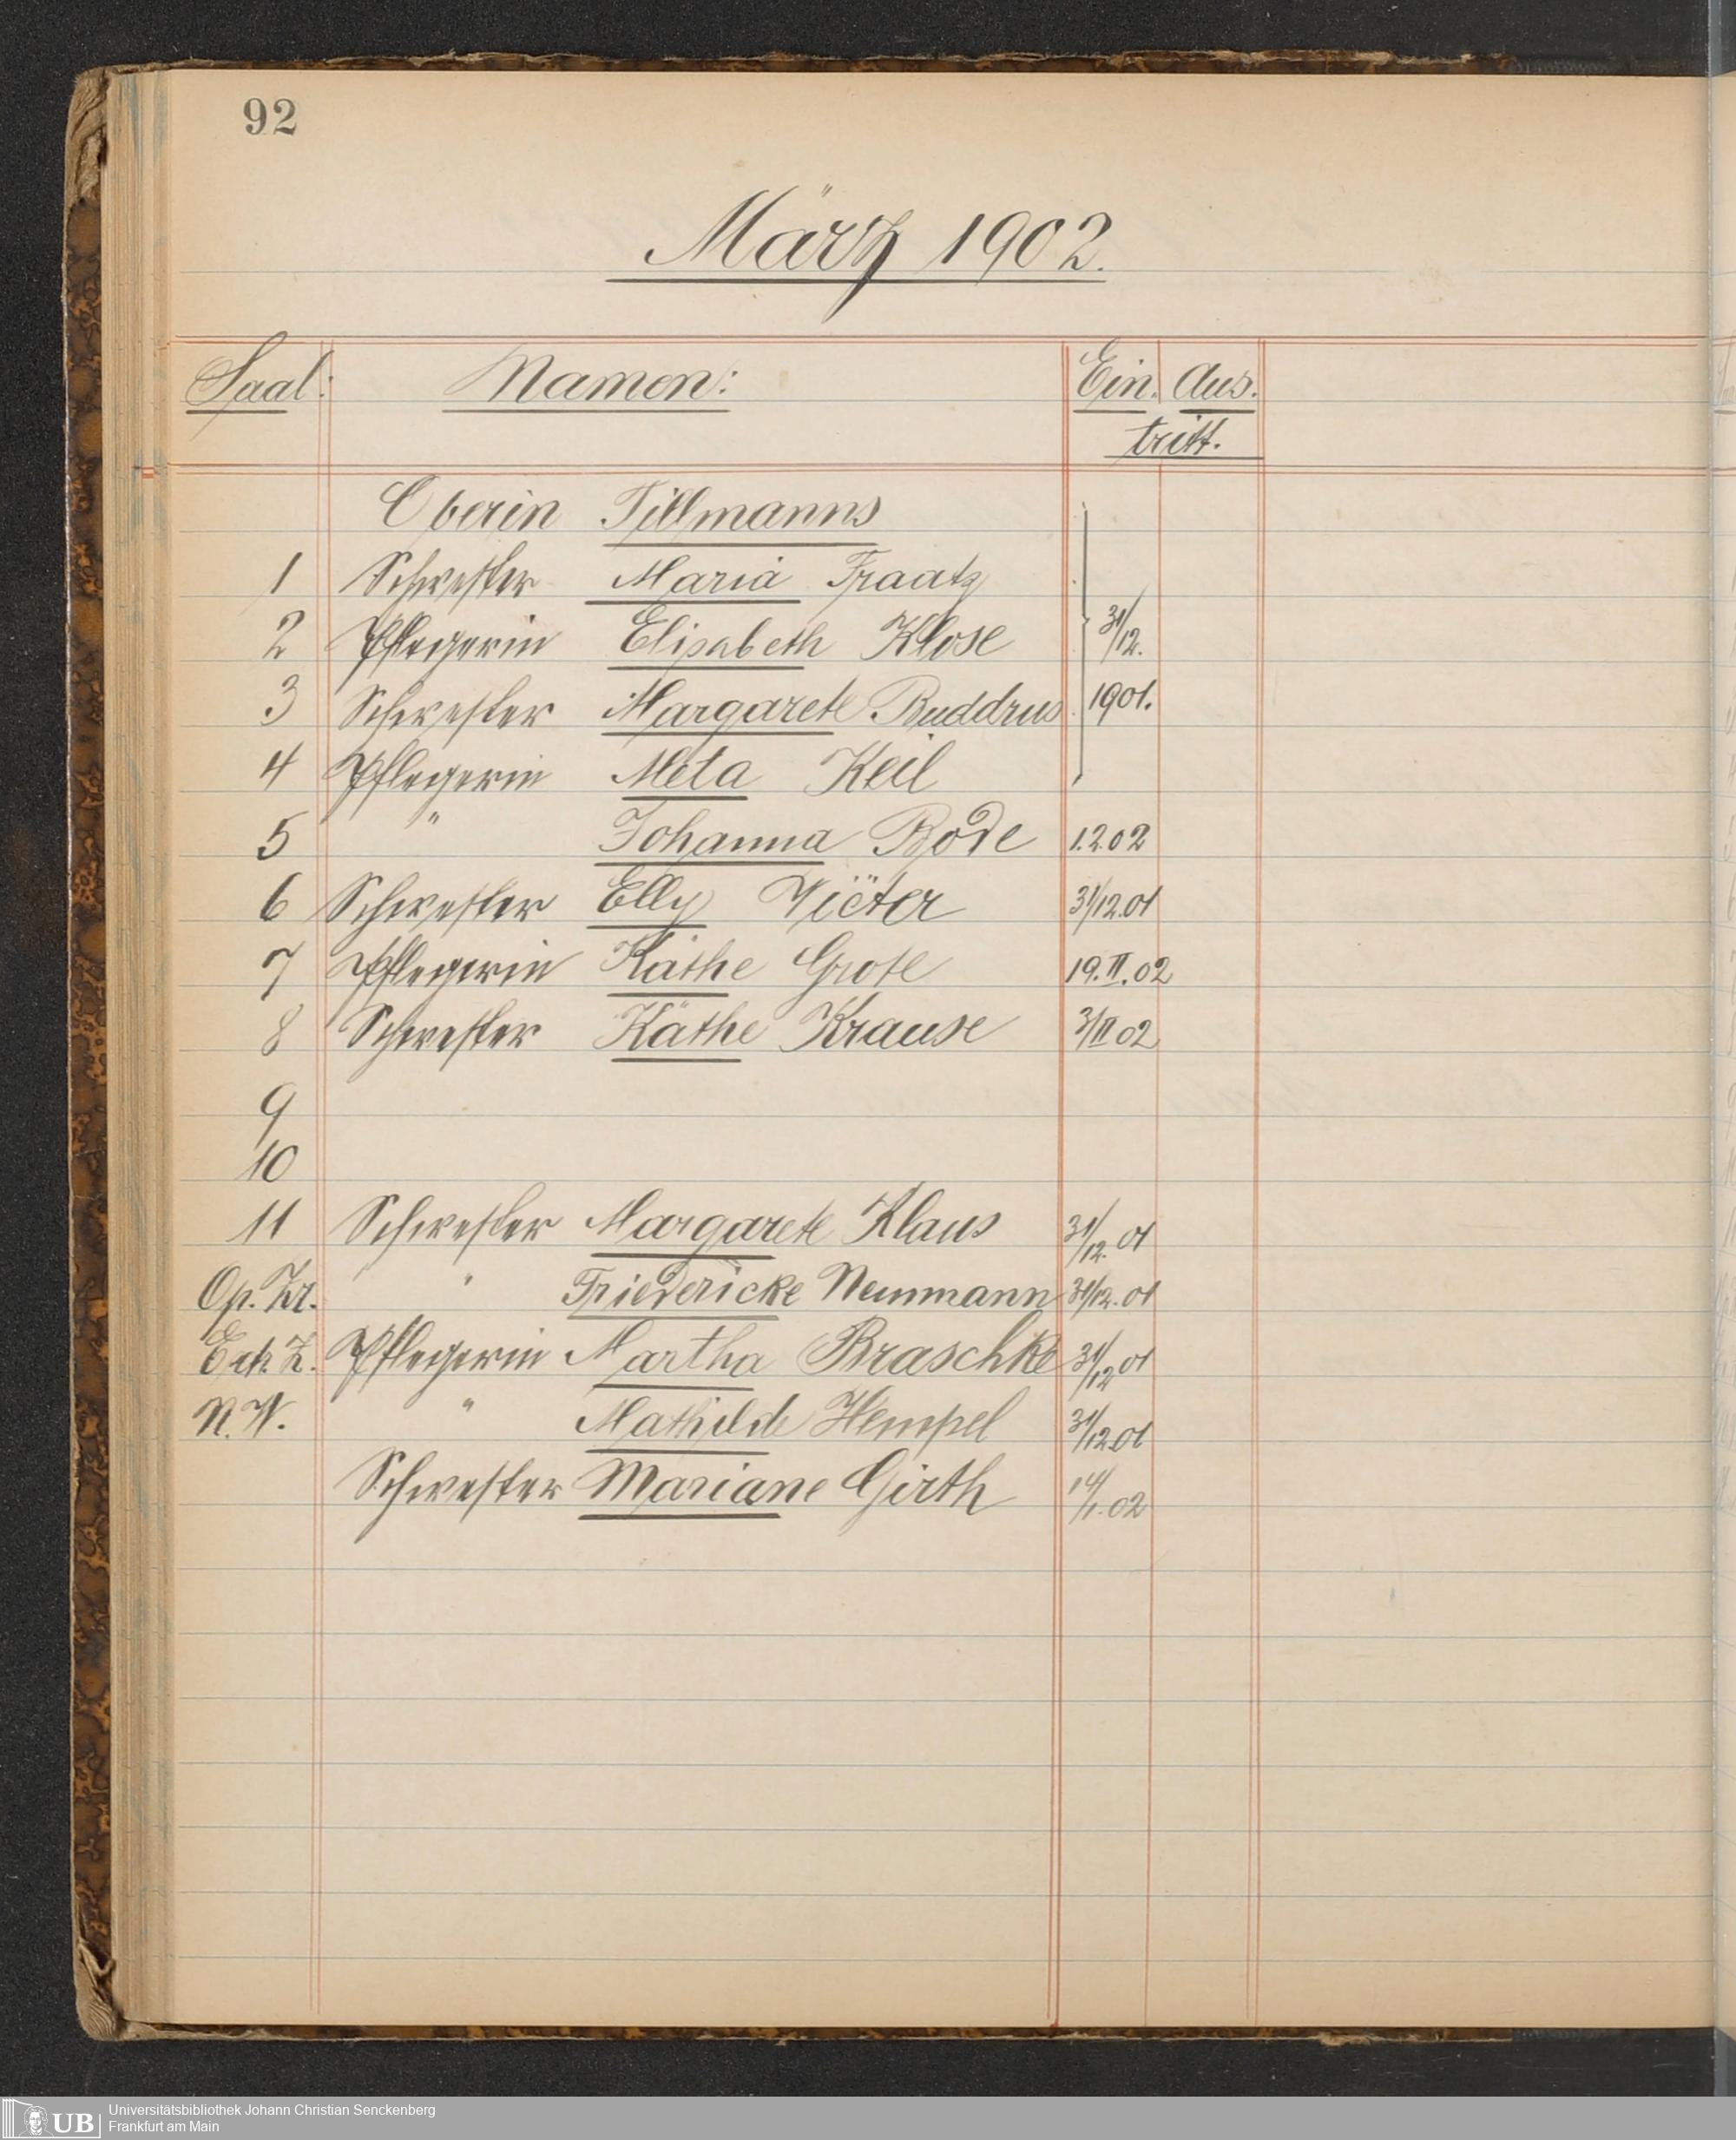 92
März 1902.
Saal: Namen: Ein. Aus.
tritt.
Oberin Tillmanns
1 Schwester Maria Fraatz
2 Pflegerin Elisabeth Klose 31/12.
3 Schwester Margarete Buddrus 1901.
4 Pflegerin Meta Keil
5 " Johanna Bode 1.2.02
6 Schwester Elly 31/12.01
7 Pflegerin Käthe Grote 19.II.02
8 Schwester Käthe Krause 3/II 02
9
10
11 Schwester Margarete Klaus 31/12. 01
Op. Zr. " Friedericke Neummann 31/12. 01
Z. Pflegerin Martha Braschke 31/12 01
N.W. " Mathilde Hempel 31/12.01
Schwester Mariane Girth 14/1. 02
UB Universitätsbibliothek Johann Christian Senckenberg
Frankfurt am Main